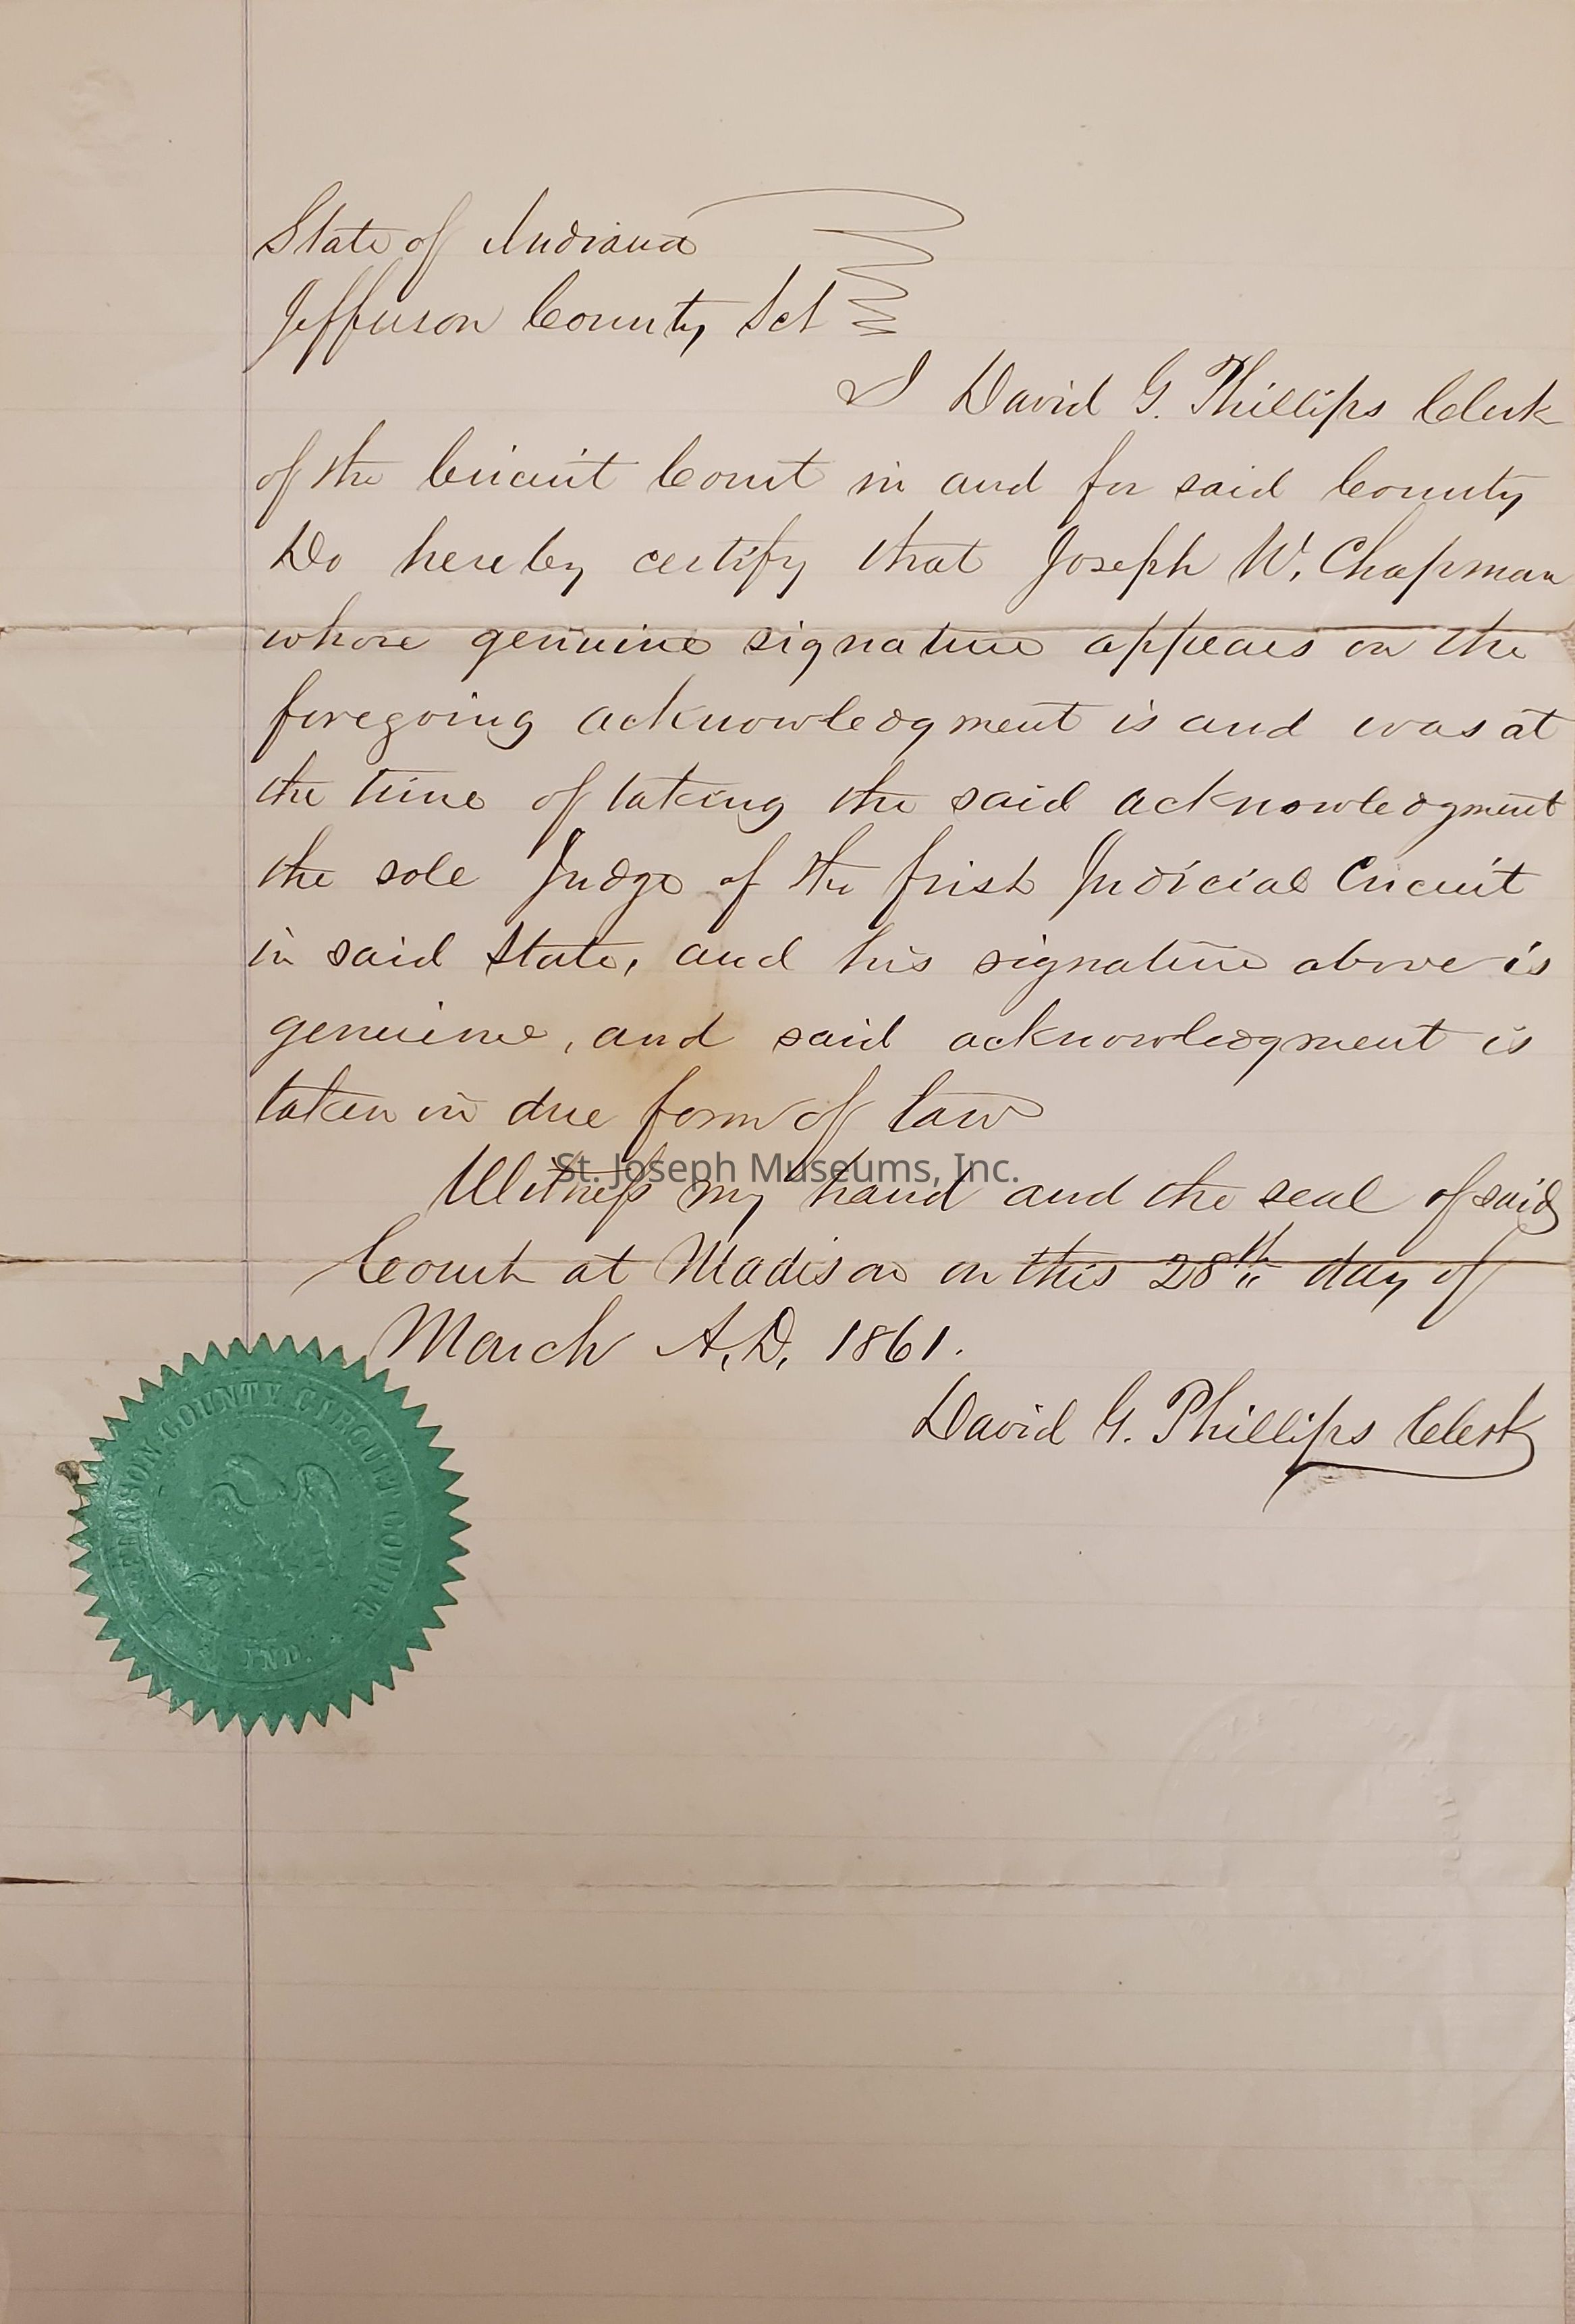 State of Indiana
Jefferson County Sct
I David G. Phillips Clerk
of the Circuit Court in and for said County
Do hereby certify that Joseph W. Chapman
whose genuine signature appears on the
foregoing acknowledgment is and was at
the time of taking the said acknowledgment
the sole Judge of the first Judicial Circuit
in said State, and his signature above is
genuine, and said acknowledgment is
taken in due form of law
St. Joseph Museums, Inc.
Witness my hand and the seal of said
Court at Madison on this 28th day of
March A.D. 1861.
David G. Phillips Clerk
JEFFERSON COUNTY CIRCUIT COURT
IND.